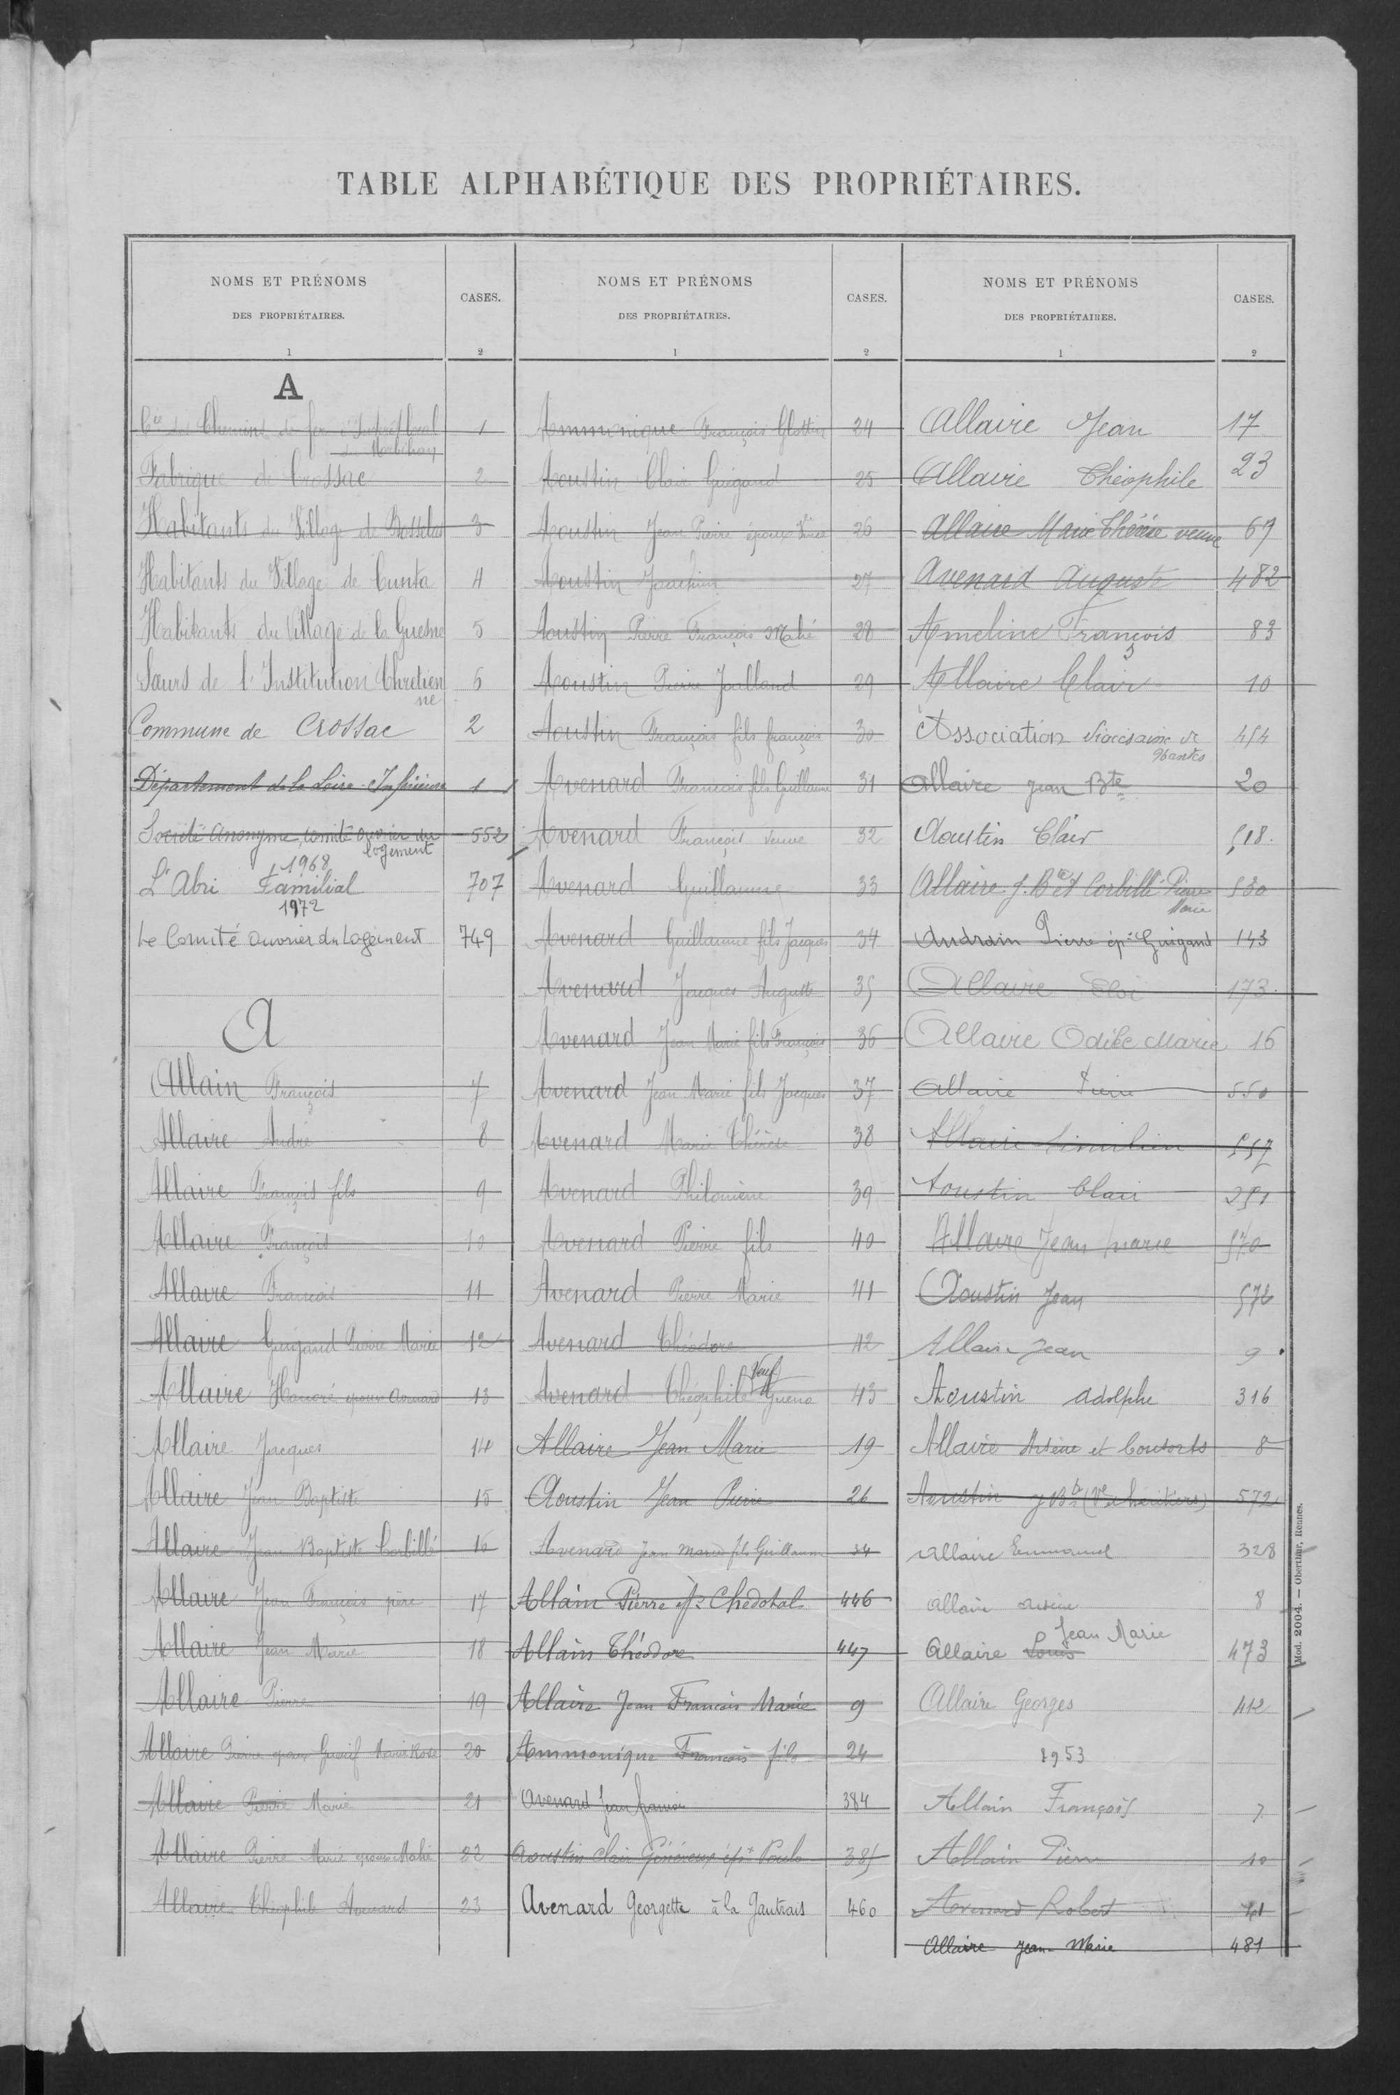 TABLE ALPHABÉTIQUE DES PROPRIÉTAIRES.
NOMS ET PRÉNOMS
DES PROPRIÉTAIRES.
CASES.
1
2
A
Cie des Chemins de fer d'Intérêt local 1
du Morbihan
Fabrique de Crossac 2
Habitants du Village de 3
Habitants du Village de Cunta 4
Habitants du Village de la Guesne 5
Sœurs de l'Institution Chrétien 6
ne
Commune de Crossac 2
Département de la Loire-Inférieure 1
Société Anonyme, comité ouvrier du 552
logement
1968
L'Abri Familial 707
1972
Le Comité ouvrier du Logement 749
A
Allain François 7
Allaire André 8
Allaire François fils 9
Allaire François 10
Allaire François 11
Allaire Guigand Pierre Marie 12
Allaire Honoré époux Avenard 13
Allaire Jacques 14
Allaire Jean Baptiste 15
Allaire Jean Baptiste Corbillé 16
Allaire Jean François père 17
Allaire Jean Marie 18
Allaire Pierre 19
Allaire Pierre époux Marie Rose 20
Allaire Pierre Marie 21
Allaire Pierre Marie époux Mahé 22
Allaire Théophile Avenard 23
NOMS ET PRÉNOMS
DES PROPRIÉTAIRES.
CASES.
1
2
Ammonique François 24
Aoustin Clair Guigand 25
Aoustin Jean Pierre époux 26
Aoustin Joachim 27
Aoustin Pierre François Mahé 28
Aoustin Pierre Jalland 29
Aoustin François fils françois 30
Avenard François fils Guillaume 31
Avenard François veuve 32
Avenard Guillaume 33
Avenard Guillaume fils Jacques 34
Avenard Jacques Auguste 35
Avenard Jean Marie fils François 36
Avenard Jean Marie fils Jacques 37
Avenard Marie Thérèse 38
Avenard Philomène 39
Avenard Pierre fils 40
Avenard Pierre Marie 41
Avenard Théodore 42
Veuf
Avenard Théophile Gueno 43
Allaire Jean Marie 19
Aoustin Jean Pierre 26
Avenard Jean Marie fils Guillaume 34
Allain Pierre ép. Chedotal 446
Allain Théodore 447
Allaire Jean François Marie 9
Ammonique François fils 24
Avenard Jean françois 384
Aoustin Clair Généreux épx Poulo 385
Avenard Georgette à la Jautrais 460
NOMS ET PRÉNOMS
DES PROPRIÉTAIRES.
CASES.
1
2
Allaire Jean 17
Allaire Théophile 23
Allaire Marie Thérèse veuve 67
Avenard Auguste 482
Ameline François 83
Allaire Clair 10
Association diocésaine de 454
Nantes
Allaire Jean Bte 20
Aoustin Clair 518
Allaire J. Bte et Corbillé Pierre 530
Marie
Andrain Pierre ép. Guigand 143
Allaire Eloi 173
Allaire Odile Marie 16
Allaire Pierre 550
Allaire 557
Aoustin Clair 251
Allaire Jean Marie 570
Aoustin Jean 572
Allaire Jean 9
Aoustin Adolphe 316
Allaire Arsène et Consorts 8
Aoustin J Bte (Ve et héritiers) 572
Allaire Emmanuel 328
Allaire Arsène 8
Jean Marie
Allaire Louis 473
Allaire Georges 412
1953
Allain François 7
Allain Pierre 10
Avenard Robert 41
Allaire Jean Marie 481
Mod. 2004. — Oberthur, Rennes.